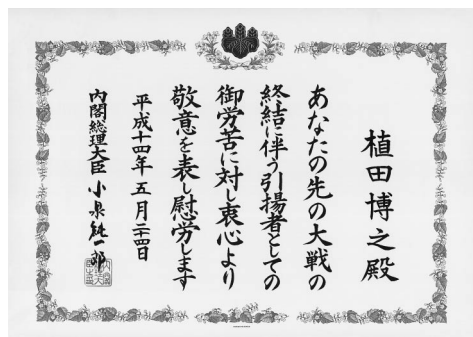 植田博之殿
あなたの先の大戦の
終結に伴う引揚者としての
御労苦に対し衷心より
敬意を表し慰労します
平成十四年五月二十四日
内閣総理大臣 小泉純一郎